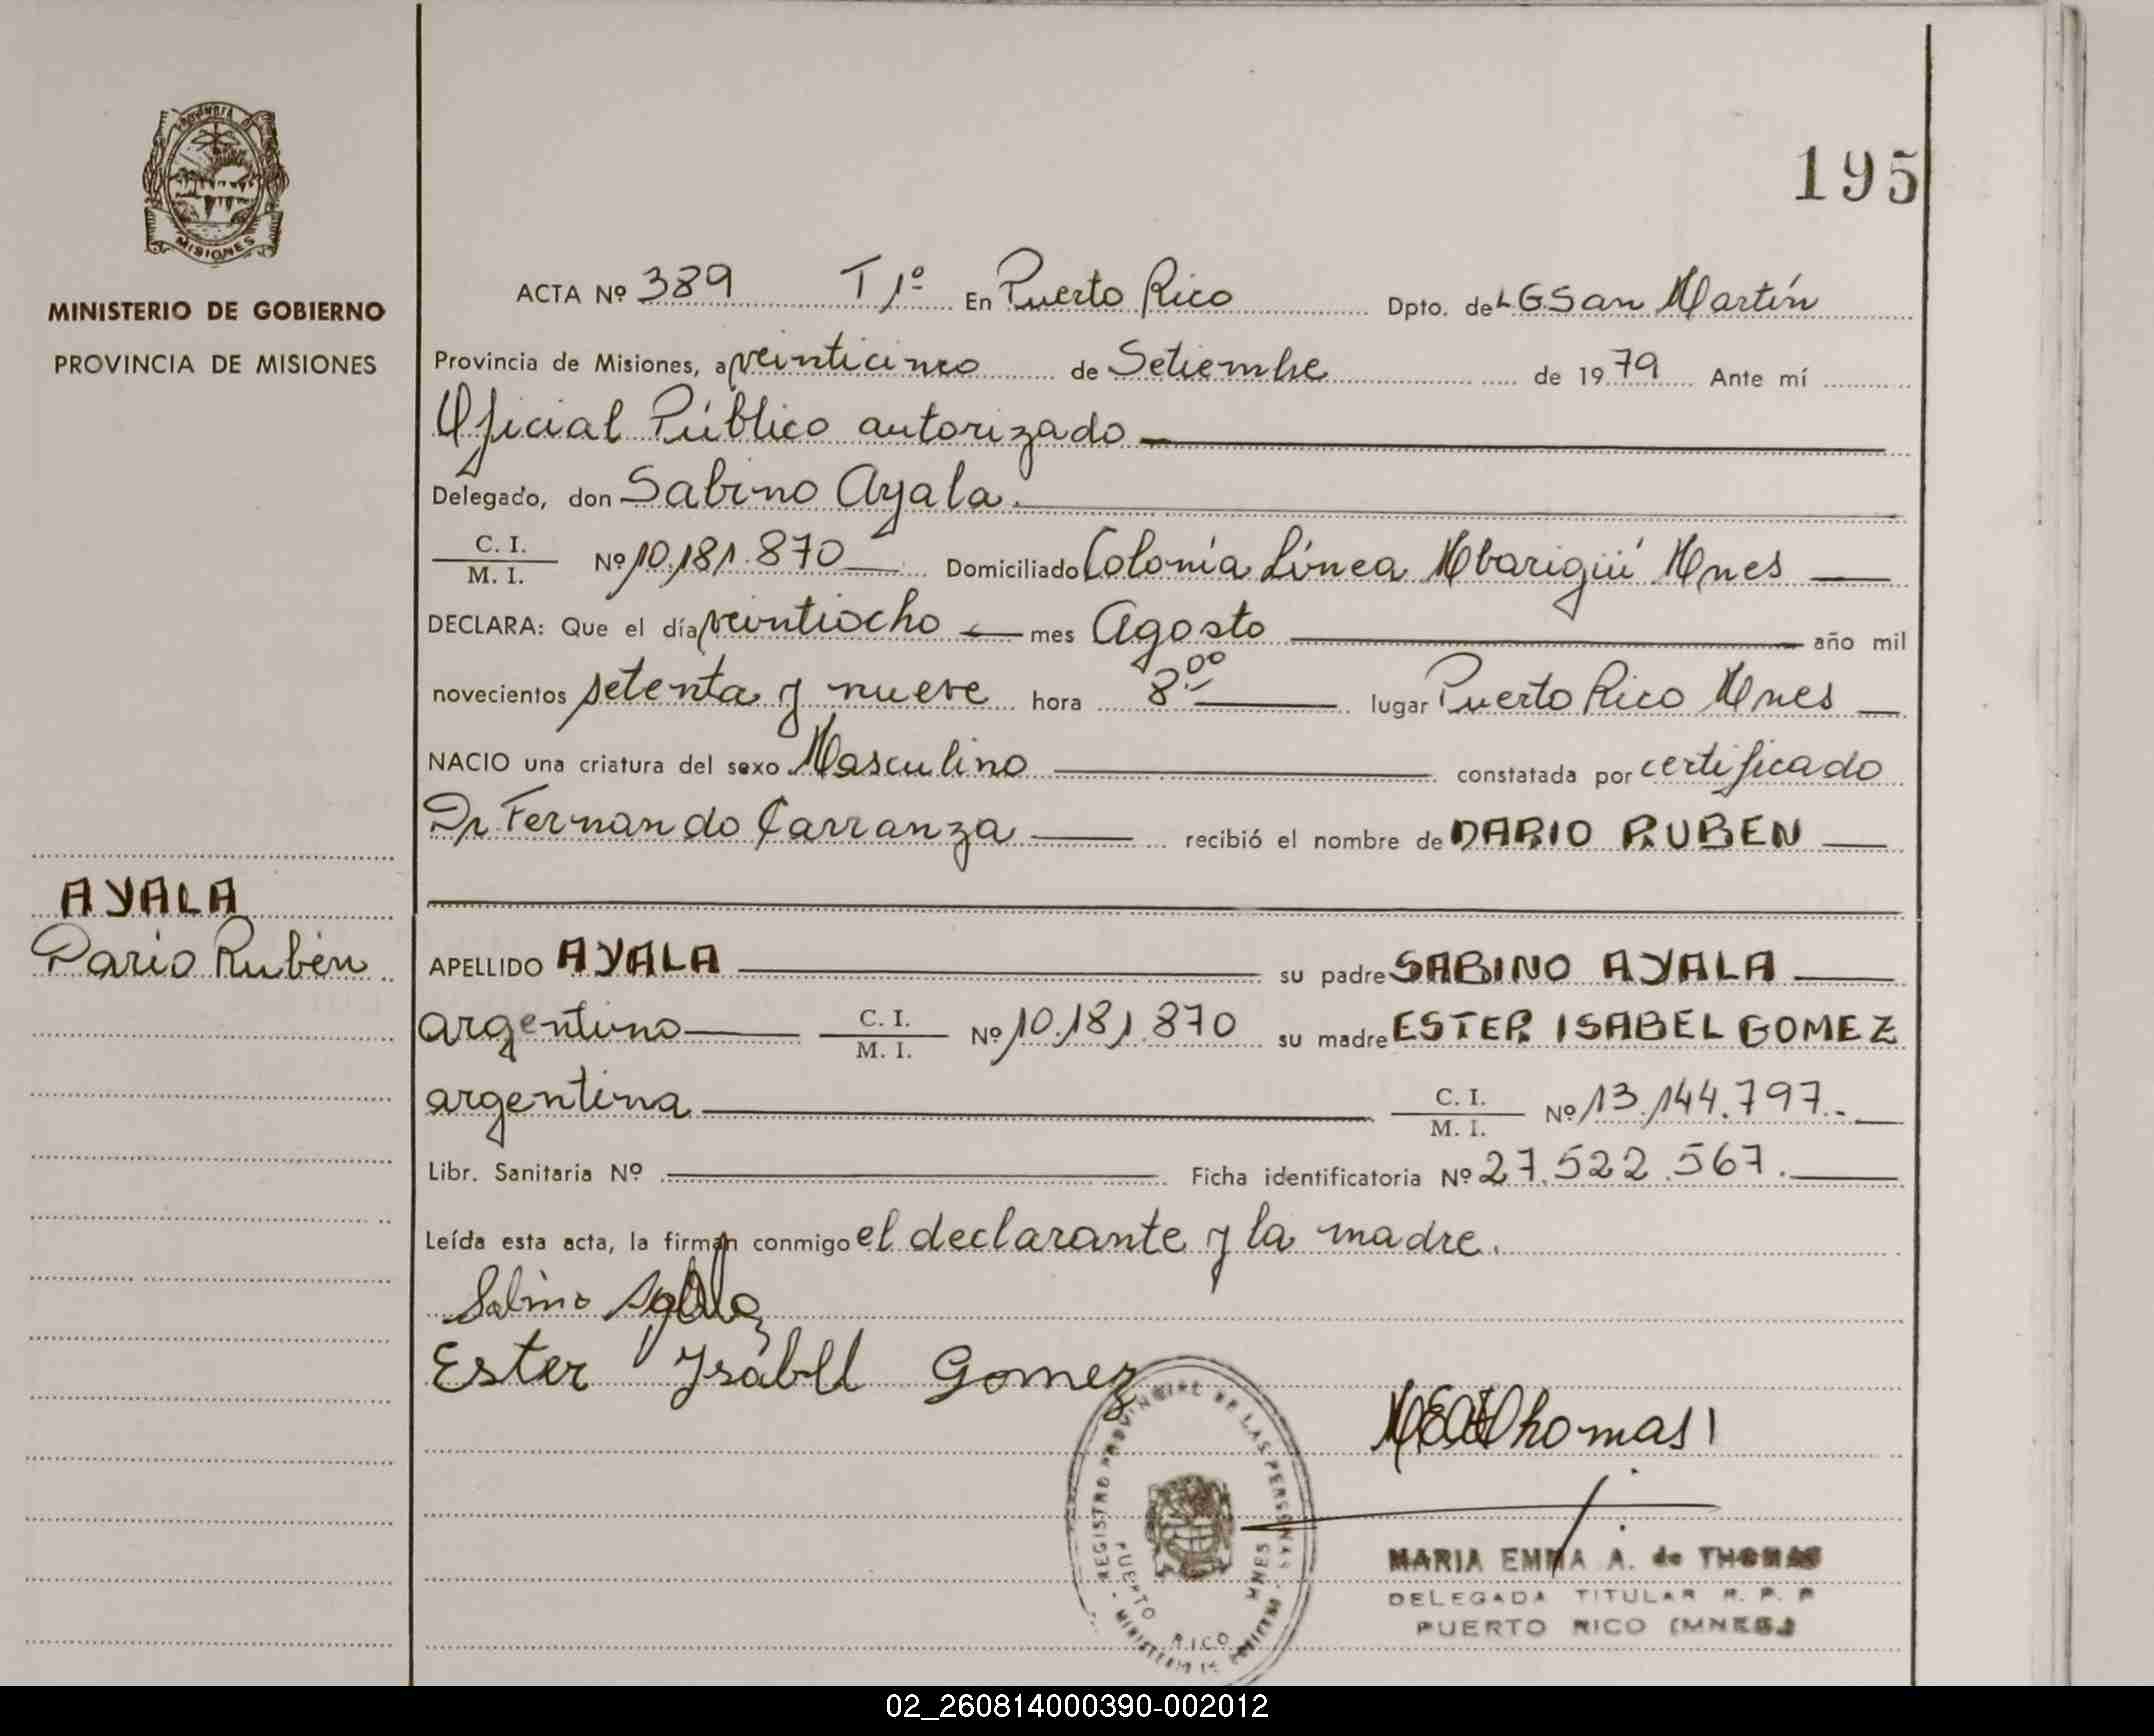 MISIONES
MINISTERIO DE GOBIERNO
PROVINCIA DE MISIONES
AYALA
Dario Rubén
195
ACTA Nº 389 T 1º En Puerto Rico Dpto. de L G San Martín
Provincia de Misiones, a veinticinco de Setiembre de 1979 Ante mí
Oficial Público autorizado
Delegado, don Sabino Ayala.
C. I. / M. I. Nº 10.181.870 Domiciliado Colonia Línea Mbarigüí Mnes
DECLARA: Que el día veintiocho mes Agosto año mil
novecientos setenta y nueve hora 8⁰⁰ lugar Puerto Rico Mnes
NACIO una criatura del sexo Masculino constatada por certificado
Dr Fernando Carranza recibió el nombre de DARIO RUBEN
APELLIDO AYALA su padre SABINO AYALA
argentino C. I. / M. I. Nº 10.181.870 su madre ESTER ISABEL GOMEZ
argentina C. I. / M. I. Nº 13.144.797.-
Libr. Sanitaria Nº Ficha identificatoria Nº 27.522.567.
Leída esta acta, la firman conmigo el declarante y la madre.
Sabino Ayala
Ester Ysabel Gomez
REGISTRO PROVINCIAL DE LAS PERSONAS
PUERTO RICO MNES
MINISTERIO DE GOBIERNO
MARIA EMMA A. de THOMAS
DELEGADA TITULAR R. P. P
PUERTO RICO (MNES.)
02_260814000390-002012